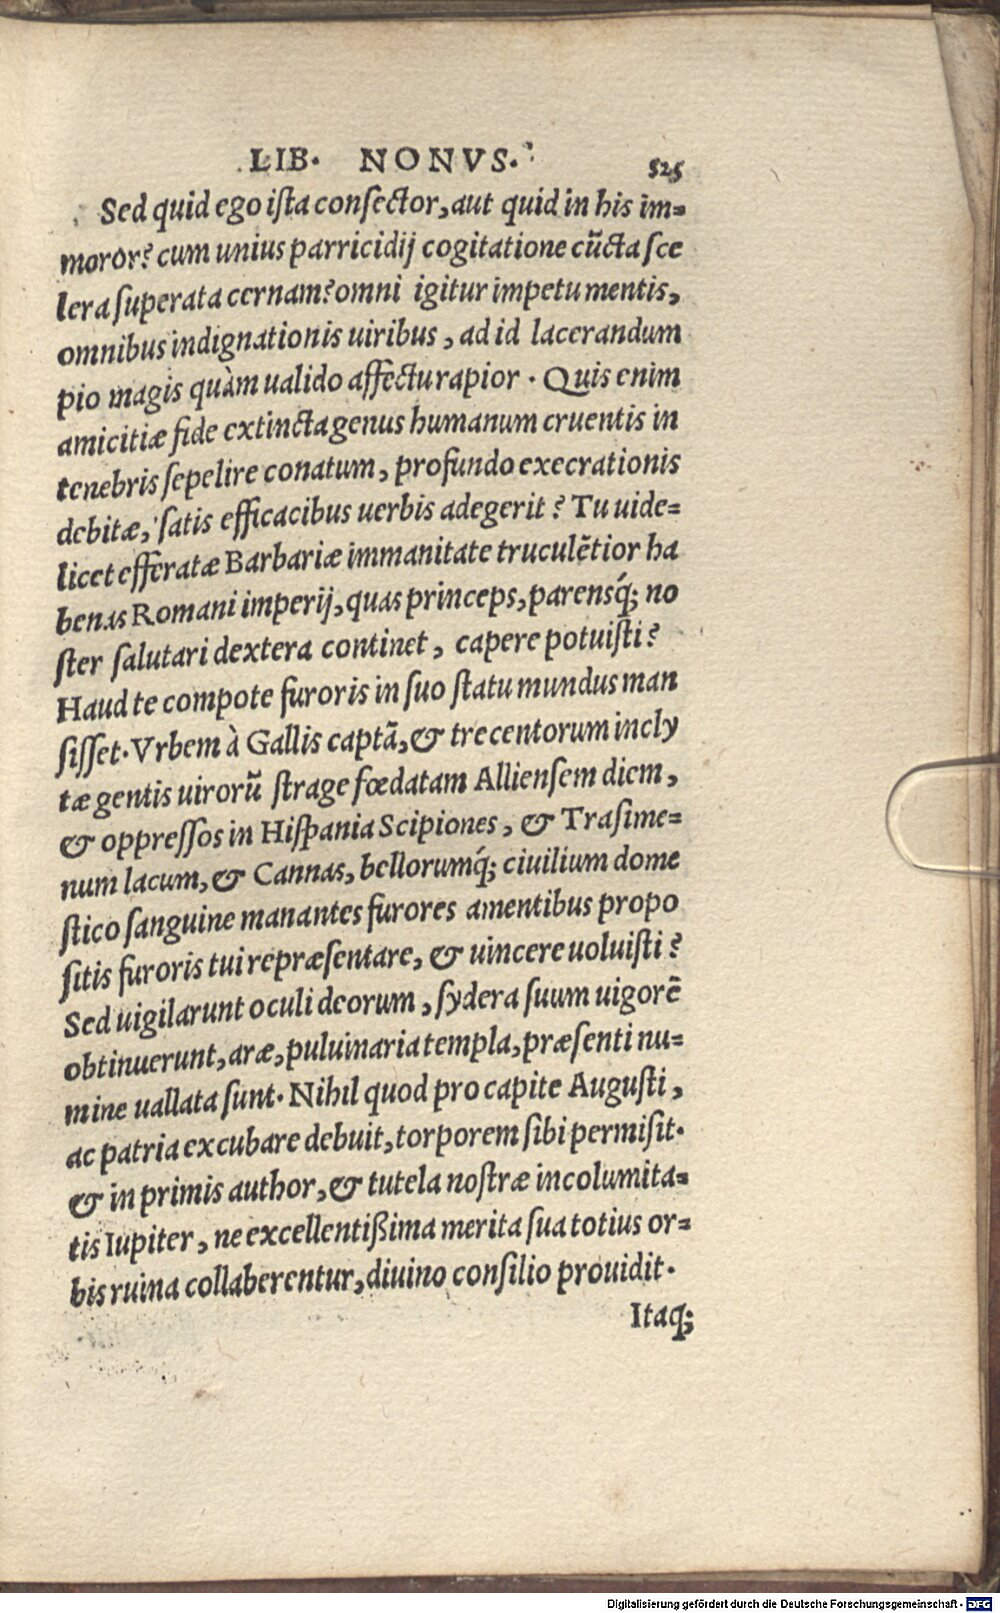 LIB. NONVS. 525
Sed quid ego ista consector, aut quid in his im=
moror? cum unius parricidij cogitatione cũcta sce
lera superata cernam? omni igitur impetu mentis,
omnibus indignationis uiribus, ad id lacerandum
pio magis quàm ualido affectu rapior. Quis enim
amicitiæ fide extincta genus humanum cruentis in
tenebris sepelire conatum, profundo execrationis
debitæ, satis efficacibus uerbis adegerit? Tu uide=
licet efferatæ Barbariæ immanitate truculẽtior ha
benas Romani imperij, quas princeps, parensq́; no
ster salutari dextera continet, capere potuisti?
Haud te compote furoris in suo statu mundus man
sisset. Vrbem à Gallis captã, & trecentorum incly
tæ gentis uirorũ strage fœdatam Alliensem diem,
& oppressos in Hispania Scipiones, & Trasime=
num lacum, & Cannas, bellorumq́; ciuilium dome
stico sanguine manantes furores amentibus propo
sitis furoris tui repræsentare, & uincere uoluisti?
Sed uigilarunt oculi deorum, sydera suum uigorẽ
obtinuerunt, aræ, puluinaria templa, præsenti nu=
mine uallata sunt. Nihil quod pro capite Augusti,
ac patria excubare debuit, torporem sibi permisit.
& in primis author, & tutela nostræ incolumita=
tis Iupiter, ne excellentißima merita sua totius or=
bis ruina collaberentur, diuino consilio prouidit.
Itaq;
Digitalisierung gefördert durch die Deutsche Forschungsgemeinschaft - DFG